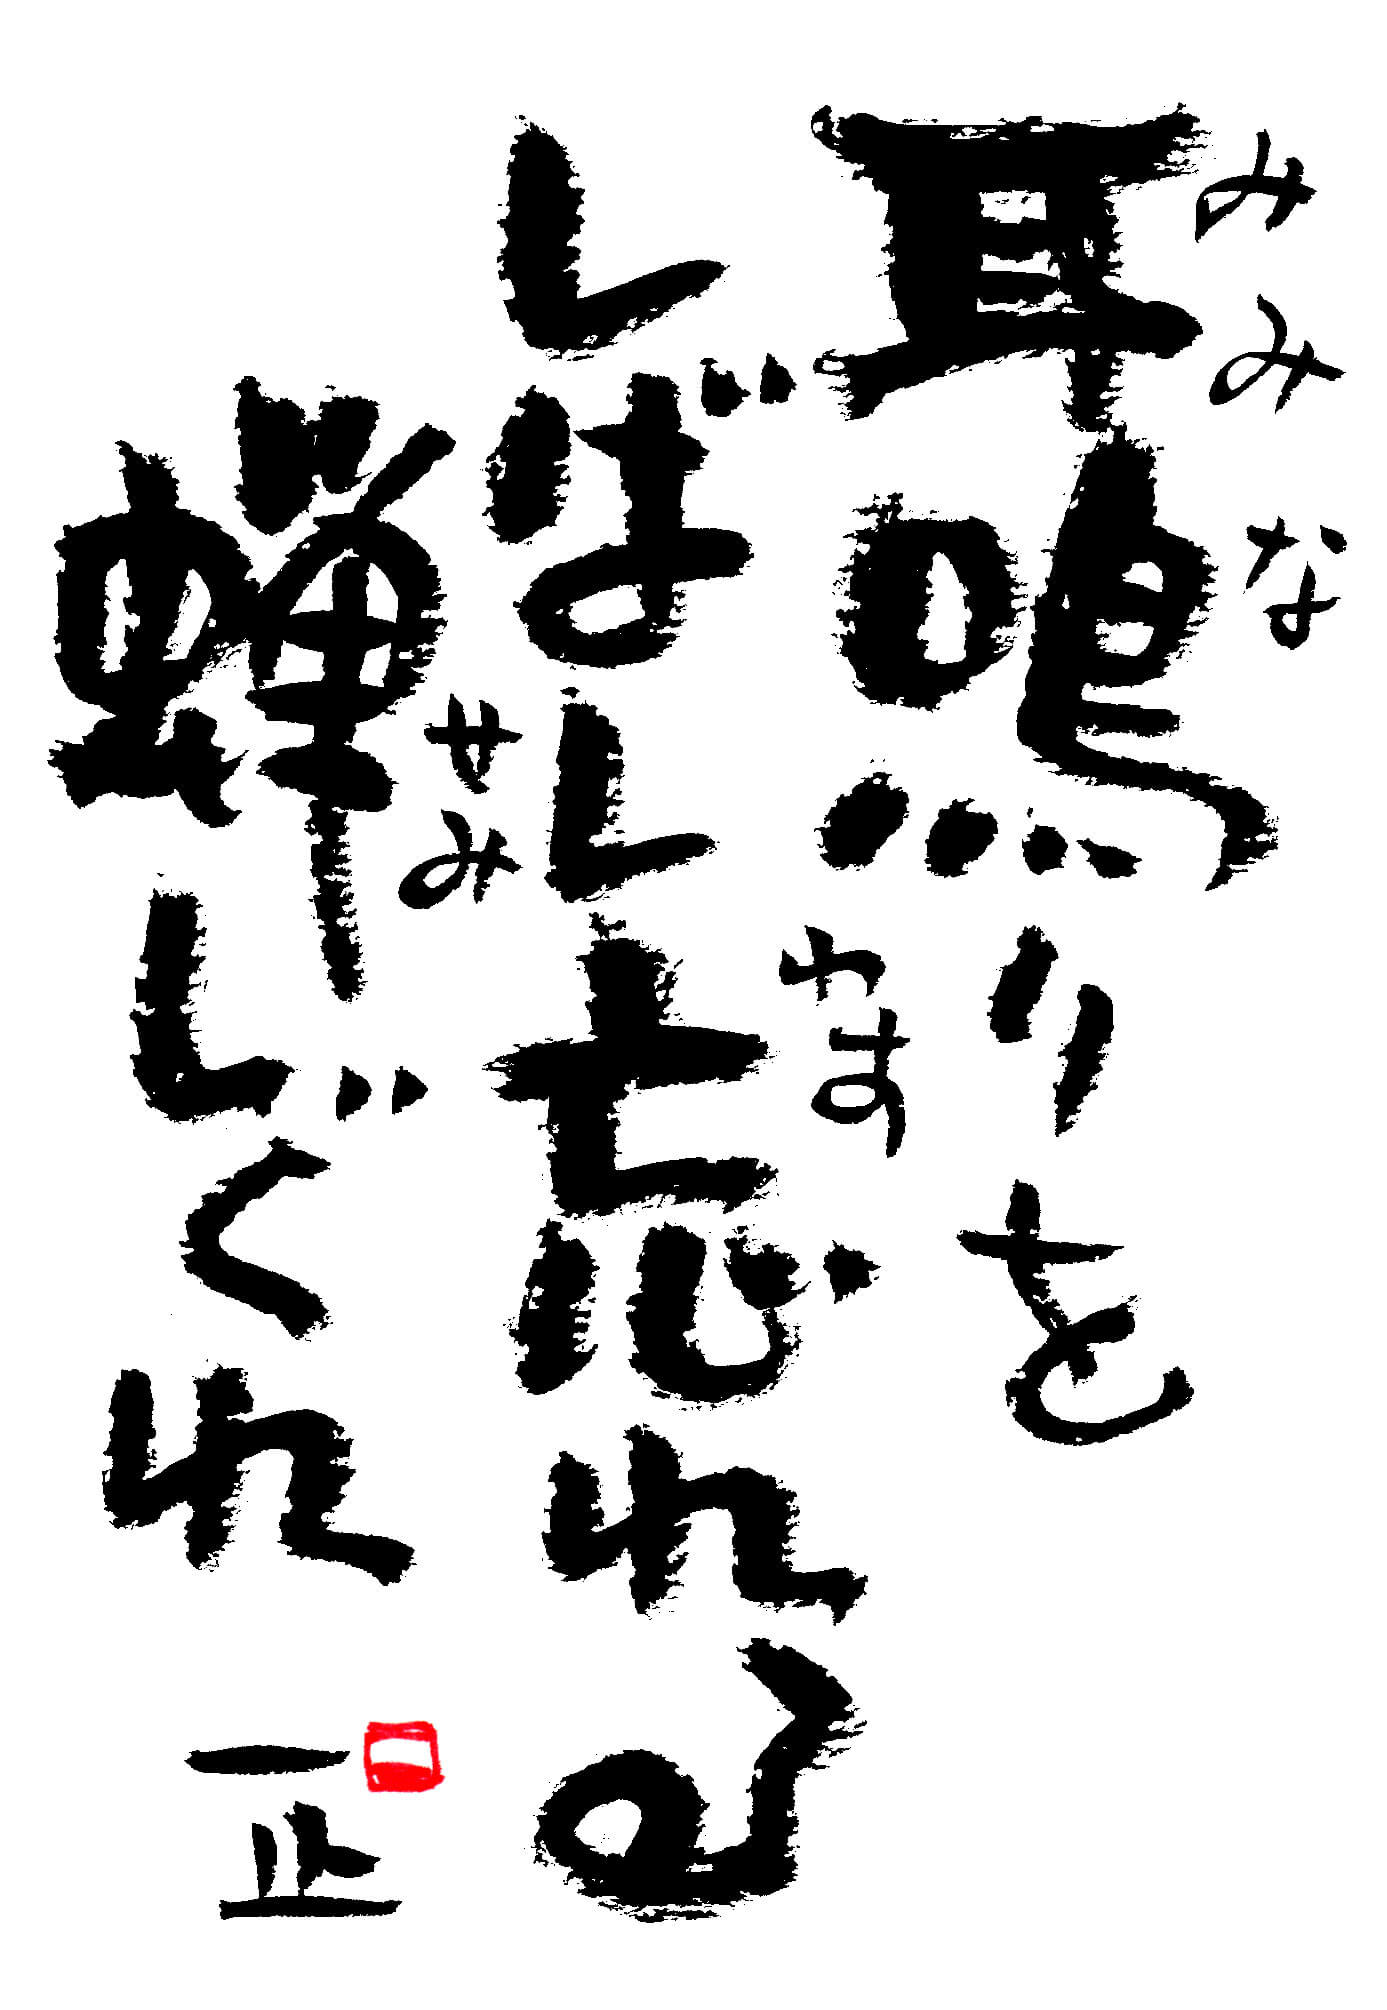 みみ な
耳鳴りを
わす
しばし忘れる
せみ
蝉しぐれ
一止